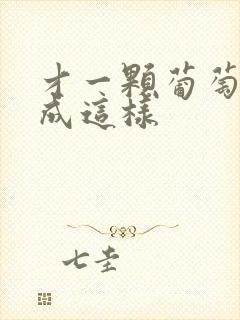 才一顆葡萄
成這樣
七圭